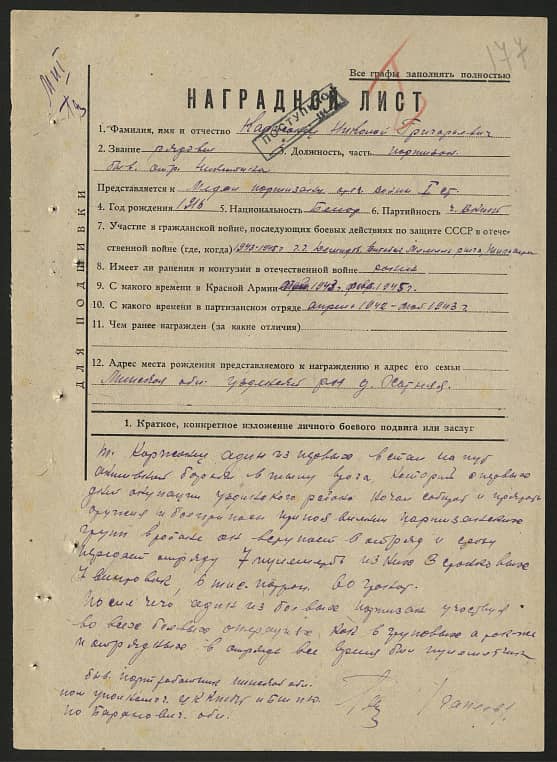 177
Все графы заполнять полностью
НАГРАДНОЙ ЛИСТ
ПОСТУПИЛО
1. Фамилия, имя и отчество Николай Григорьевич
2. Звание рядовой 3. Должность, часть партизан
быв. отр.
Представляется к медали партизану отеч. войны I ст.
4. Год рождения 1916 5. Национальность Белор 6. Партийность
7. Участие в гражданской войне, последующих боевых действиях по защите СССР в отече-
ственной войне (где, когда) 1943-1945 г.г.
8. Имеет ли ранения и контузии в отечественной войне ранен
9. С какого времени в Красной Армии 1943 г. февр. 1945 г.
10. С какого времени в партизанском отряде апрель 1942 - 1943 г.
11. Чем ранее награжден (за какие отличия)
12. Адрес места рождения представляемого к награждению и адрес его семьи
Минская обл. Узденский р-н д.
ДЛЯ ПОДШИВКИ
1. Краткое, конкретное изложение личного боевого подвига или заслуг
т. один из первых встал на путь
активной борьбы в тылу врага, который с первых
дней оккупации Узденского района начал собирать и прятать
оружие и боеприпасы при появлении партизанских
групп в районе он вступает в отряд и сразу
передает отряду 7 пулеметов из них 3
7 винтовок, 6 тыс. патрон, 60 гранат.
После чего один из боевых партизан участвуя
во всех боевых операциях, как в групповых а так же
и отрядных в отряде все время был пулеметчик
быв. Минской обл.
пом уполномоч. ЦК КП(б)Б и БШПД
по Баранович. обл.